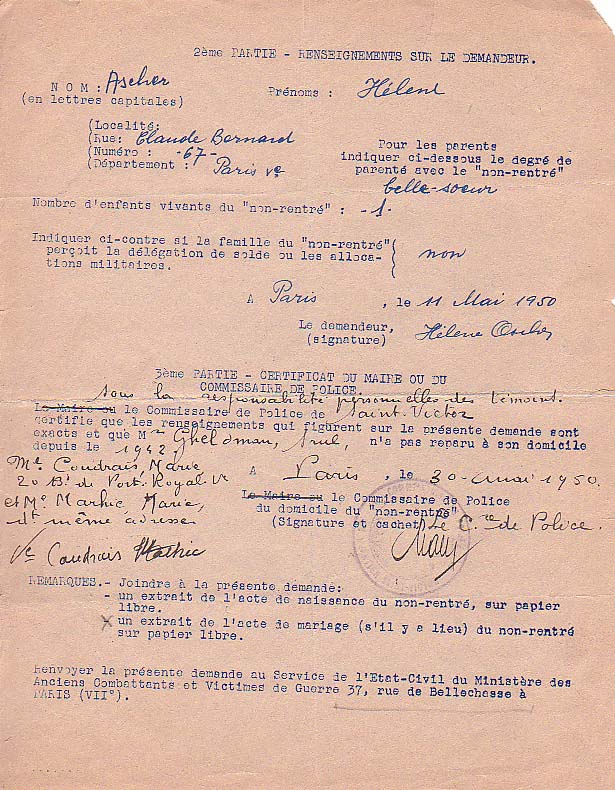 2ème PARTIE - RENSEIGNEMENTS SUR LE DEMANDEUR.
NOM : Ascher
(en lettres capitales)
Prénoms : Hélène
(Localité:
(Rue: Claude Bernard
(Numéro : -67-
(Département : Paris Ve
Pour les parents
indiquer ci-dessous le degré de
parenté avec le "non-rentré"
belle-soeur
Nombre d'enfants vivants du "non-rentré" : -1-
Indiquer ci-contre si la famille du "non-rentré"
perçoit la délégation de solde ou les alloca-
tions militaires.
non
A Paris , le 11 Mai 1950
Le demandeur,
(signature)
Hélène Ascher
3ème PARTIE - CERTIFICAT DU MAIRE OU DU
COMMISSAIRE DE POLICE.
sous la responsabilité personnelles des témoins
Le Maire ou le Commissaire de Police de Saint-Victor
certifie que les renseignements qui figurent sur la présente demande sont
exacts et que Mr Gheldman, Srul, n'a pas reparu à son domicile
depuis le 1942.
Me Coudrais, Marie
20 Bd de Port-Royal Ve
et Me Mathic, Marie,
dt même adresse
Ve Coudrais Mathic
A Paris , le 30-mai 1950.
Le Maire ou le Commissaire de Police
du domicile du "non-rentré"
(Signature et cachet) Le Cre de Police.
REMARQUES.- Joindre à la présente demande:
- un extrait de l'acte de naissance du non-rentré, sur papier
libre.
x un extrait de l'acte de mariage (s'il y a lieu) du non-rentré
sur papier libre.
Renvoyer la présente demande au Service de l'Etat-Civil du Ministère des
Anciens Combattants et Victimes de Guerre 37, rue de Bellechasse à
PARIS (VII°).